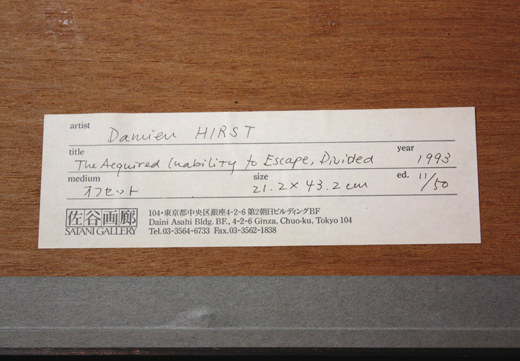 artist Damien HIRST
title The Acquired Inability to Escape, Divided year 1993
medium オフセット size 21.2 × 43.2 cm ed. 11/50
佐谷画廊
SATANI GALLERY
104・東京都中央区銀座4-2-6 第2朝日ビルディングBF
Daini Asahi Bldg. BF., 4-2-6 Ginza, Chuo-ku, Tokyo 104
Tel.03-3564-6733 Fax.03-3562-1838